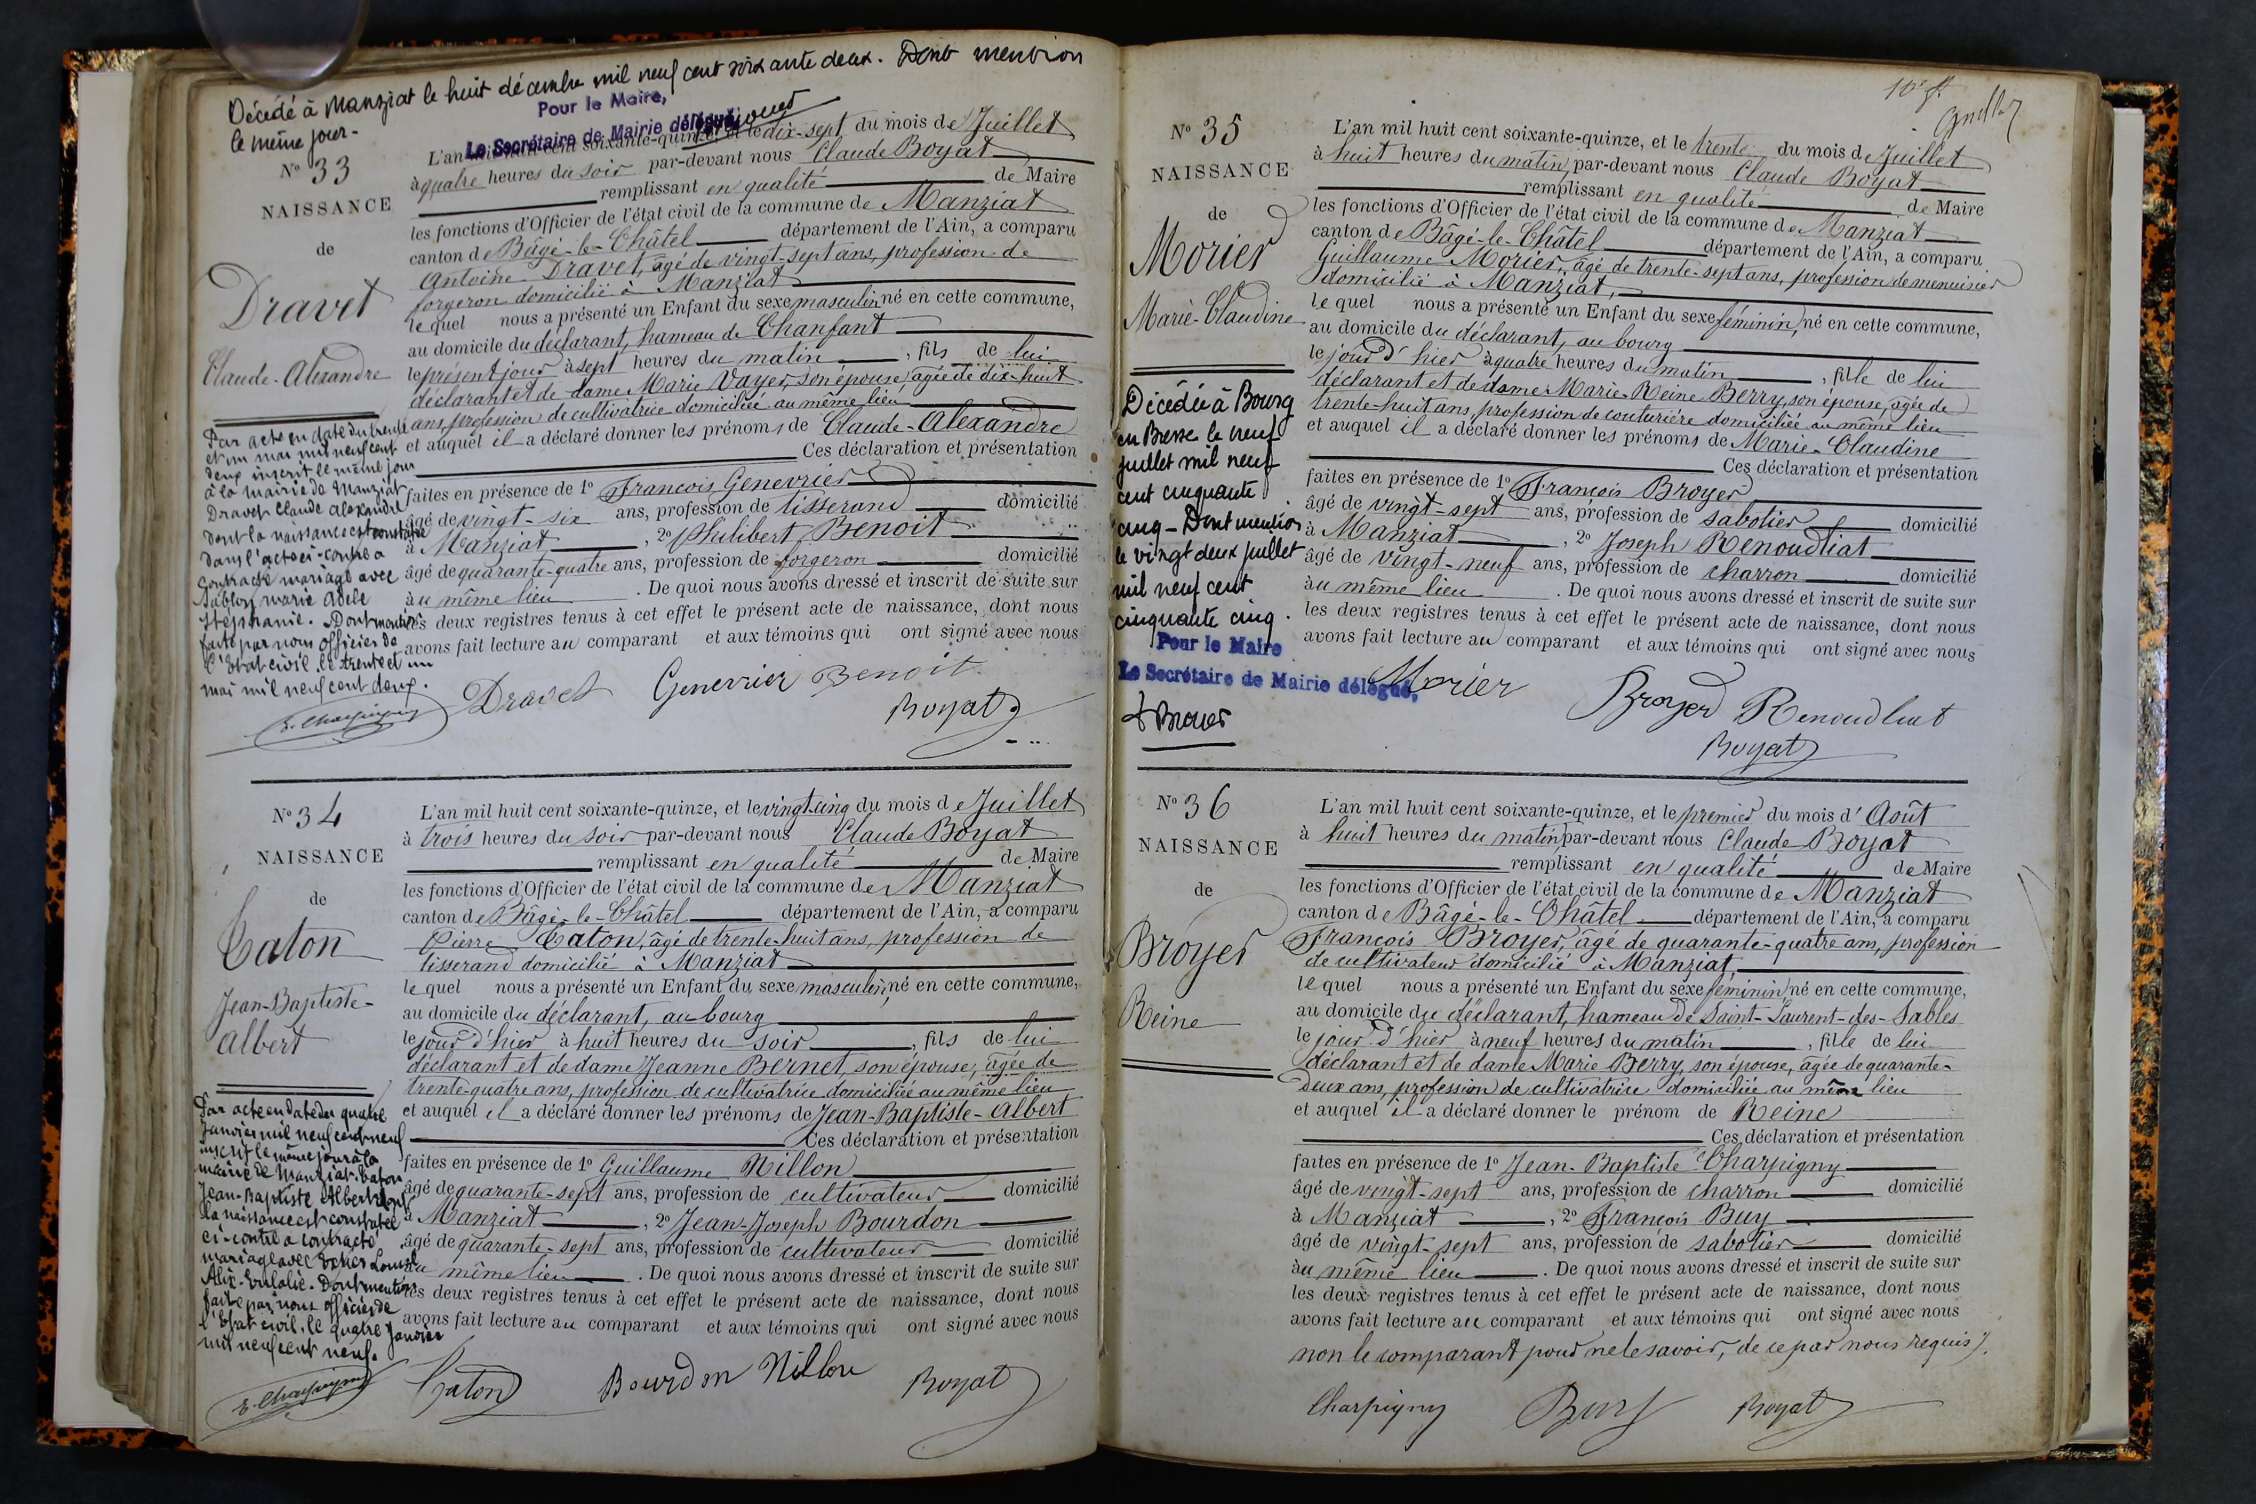 Décédé à Manziat le huit décembre mil neuf cent soixante deux. Dont mention
le même jour.
Pour le Maire,
Le Secrétaire de Mairie délégué,
N° 33
NAISSANCE
de
Dravet
Claude-Alexandre
Par acte en date du trente
et un mai mil neuf cent
deux inscrit le même jour
à la mairie de Manziat
Dravet Claude Alexandre
dont la naissance est constatée
dans l'acte ci-contre a
contracté mariage avec
Sablon Marie Adèle
Stéphanie. Dont mention
faite par nous officier de
l'Etat civil le trente et un
mai mil neuf cent deux.
E. Charpigny
L'an mil huit cent soixante-quinze, et le dix-sept du mois de Juillet
à quatre heures du soir par-devant nous Claude Boyat
remplissant en qualité de Maire
les fonctions d'Officier de l'état civil de la commune de Manziat
canton de Bâgé-le-Châtel département de l'Ain, a comparu
Antoine Dravet, âgé de vingt-sept ans, profession de
forgeron domicilié à Manziat
lequel nous a présenté un Enfant du sexe masculin, né en cette commune,
au domicile du déclarant, hameau de Chanfant
le présent jour à sept heures du matin, fils de lui
déclarant et de dame Marie Vayer, son épouse, agée de dix-huit
ans, profession de cultivatrice domiciliée au même lieu
et auquel il a déclaré donner les prénoms de Claude-Alexandre
Ces déclaration et présentation
faites en présence de 1° François Genevrier
âgé de vingt-six ans, profession de tisserand domicilié
à Manziat, 2° Philibert Benoit
âgé de quarante-quatre ans, profession de forgeron domicilié
au même lieu. De quoi nous avons dressé et inscrit de suite sur
les deux registres tenus à cet effet le présent acte de naissance, dont nous
avons fait lecture au comparant et aux témoins qui ont signé avec nous
Dravet Genevrier Benoit
Boyat
N° 34
NAISSANCE
de
Caton
Jean-Baptiste-
Albert
Par acte en date du quatre
Janvier mil neuf cent neuf
inscrit le même jour à la
mairie de Manziat Caton
Jean-Baptiste Albert dont
la naissance est constatée
ci-contre a contracté
mariage avec
Alix-Eulalie. Dont mention
faite par nous officier de
l'Etat civil, le quatre Janvier
mil neuf cent neuf.
E. Charpigny
L'an mil huit cent soixante-quinze, et le vingt-cinq du mois de Juillet
à trois heures du soir par-devant nous Claude Boyat
remplissant en qualité de Maire
les fonctions d'Officier de l'état civil de la commune de Manziat
canton de Bâgé-le-Châtel département de l'Ain, a comparu
Pierre Caton, âgé de trente-huit ans, profession de
tisserand domicilié à Manziat
lequel nous a présenté un Enfant du sexe masculin, né en cette commune,
au domicile du déclarant, au bourg
le jour d'hier à huit heures du soir, fils de lui
déclarant et de dame Jeanne Bernet, son épouse, agée de
trente-quatre ans, profession de cultivatrice domiciliée au même lieu
et auquel il a déclaré donner les prénoms de Jean-Baptiste-Albert
Ces déclaration et présentation
faites en présence de 1° Guillaume Nillon
âgé de quarante-sept ans, profession de cultivateur domicilié
à Manziat, 2° Jean-Joseph Bourdon
âgé de quarante-sept ans, profession de cultivateur domicilié
au même lieu. De quoi nous avons dressé et inscrit de suite sur
les deux registres tenus à cet effet le présent acte de naissance, dont nous
avons fait lecture au comparant et aux témoins qui ont signé avec nous
Caton Bourdon Nillon Boyat
N° 35
NAISSANCE
de
Morier
Marie-Claudine
Décédée à Bourg
en Bresse le neuf
juillet mil neuf
cent cinquante
cinq - Dont mention
le vingt deux juillet
mil neuf cent
cinquante cinq.
Pour le Maire
Le Secrétaire de Mairie délégué,
Broyer
L'an mil huit cent soixante-quinze, et le trente du mois de Juillet
à huit heures du matin, par-devant nous Claude Boyat
remplissant en qualité de Maire
les fonctions d'Officier de l'état civil de la commune de Manziat
canton de Bâgé-le-Châtel département de l'Ain, a comparu
Guillaume Morier, âgé de trente-sept ans, profession de menuisier
domicilié à Manziat,
lequel nous a présenté un Enfant du sexe féminin, né en cette commune,
au domicile du déclarant, au bourg
le jour d'hier à quatre heures du matin, fille de lui
déclarant et de dame Marie-Reine Berry, son épouse, agée de
trente-huit ans, profession de couturière domiciliée au même lieu
et auquel il a déclaré donner les prénoms de Marie-Claudine
Ces déclaration et présentation
faites en présence de 1° François Broyer
âgé de vingt-sept ans, profession de sabotier domicilié
à Manziat, 2° Joseph Renoudliat
âgé de vingt-neuf ans, profession de charron domicilié
au même lieu. De quoi nous avons dressé et inscrit de suite sur
les deux registres tenus à cet effet le présent acte de naissance, dont nous
avons fait lecture au comparant et aux témoins qui ont signé avec nous
Morier Broyer Renoudliat
Boyat
N° 36
NAISSANCE
de
Broyer
Reine
L'an mil huit cent soixante-quinze, et le premier du mois d'Août
à huit heures du matin, par-devant nous Claude Boyat
remplissant en qualité de Maire
les fonctions d'Officier de l'état civil de la commune de Manziat
canton de Bâgé-le-Châtel département de l'Ain, a comparu
François Broyer, âgé de quarante-quatre ans, profession
de cultivateur domicilié à Manziat,
lequel nous a présenté un Enfant du sexe féminin né en cette commune,
au domicile du déclarant, hameau de Saint-Laurent-des-Sables
le jour d'hier à neuf heures du matin, fille de lui
déclarant et de dame Marie Berry, son épouse, agée de quarante-
deux ans, profession de cultivatrice domiciliée au même lieu
et auquel il a déclaré donner le prénom de Reine
Ces déclaration et présentation
faites en présence de 1° Jean-Baptiste Charpigny
âgé de vingt-sept ans, profession de charron domicilié
à Manziat, 2° François Buy
âgé de vingt-sept ans, profession de sabotier domicilié
au même lieu. De quoi nous avons dressé et inscrit de suite sur
les deux registres tenus à cet effet le présent acte de naissance, dont nous
avons fait lecture au comparant et aux témoins qui ont signé avec nous
non le comparant pour ne le savoir, de ce par nous requis.
Charpigny Buy Boyat